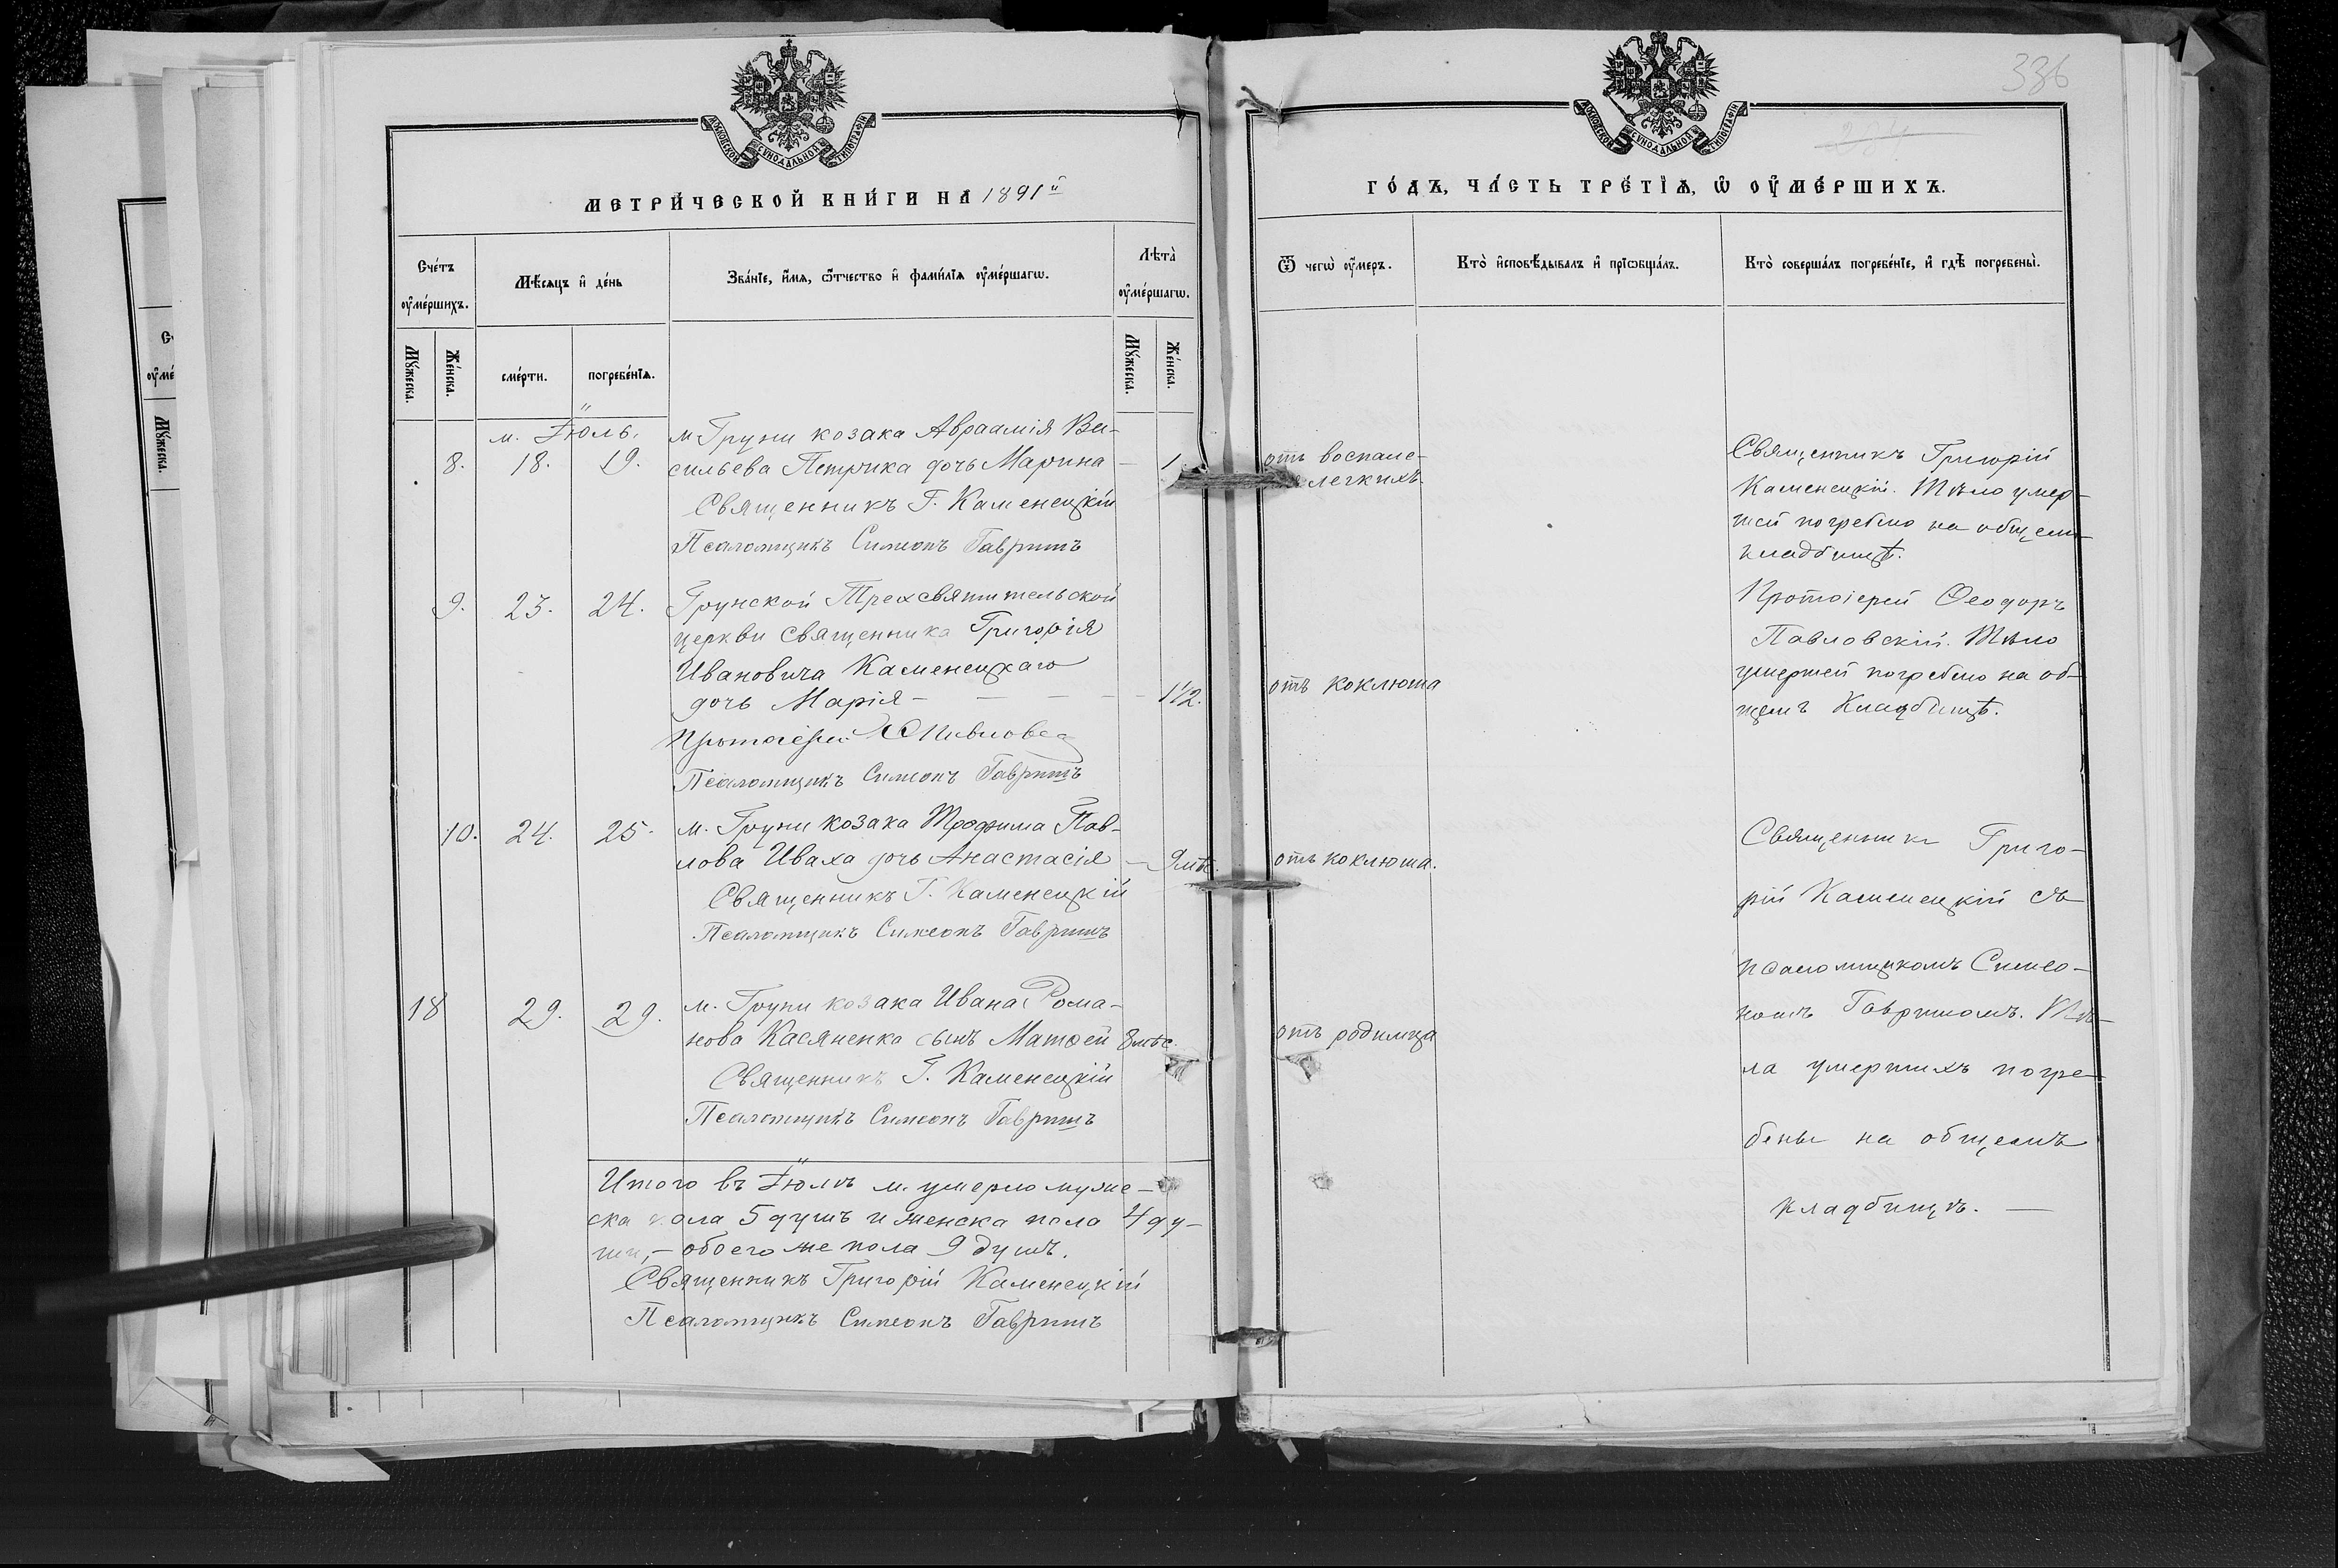 МОСКОВСКОЙ СѴНОДАЛЬНОЙ ТИПОГРАФІИ
МЕТРИ́ЧЕСКОЙ КНИ́ГИ НА 1891й
Сче́тъ оу҆ме́ршихъ.
Мѣ́сяцъ и҆ де́нь
Зва́нїе, и҆́мя, ѻ҆́тчество и҆ фами́лїя оу҆ме́ршагѡ.
Лѣта̀ оу҆ме́ршагѡ.
Мꙋ́жеска.
Же́нска.
сме́рти.
погребе́нїѧ.
Мꙋ́жеска.
Же́нска.
м. Іюль.
8. 18. 19.
м Груни козака Авраамія Ва-
сильева Петрика дочь Марина — 1.
Священникъ Г. Каменецкій
Псаломщикъ Симеонъ Гавришъ
9. 23. 24.
Грунской Трехсвятительской
церкви священника Григорія
Ивановича Каменецкаго
дочь Марія — — — — 1 1/2.
Протоіерей
Псаломщикъ Симеонъ Гавришъ
10. 24. 25.
м. Груни козака Трофима Пав-
лова Иваха дочь Анастасія — 9 мѣс.
Священникъ Г. Каменецкій
Псаломщикъ Симеонъ Гавришъ
18 29. 29.
м. Груни козака Ивана Рома-
нова Касяненка сынъ Матѳей 8 мѣс.
Священникъ Г. Каменецкій
Псаломщикъ Симеонъ Гавришъ
Итого въ Іюлѣ м. умерло муже-
ска пола 5 душъ и женска пола 4 ду-
ши, — обоего же пола 9 душъ.
Священникъ Григорій Каменецкій
Псаломщикъ Симеонъ Гавришъ
336
МОСКОВСКОЙ СѴНОДАЛЬНОЙ ТИПОГРАФІИ
ГО́ДЪ, ЧА́СТЬ ТРЕ́ТЇѦ, Ѡ҆ ОУ҆МЕ́РШИХЪ.
Ѿ чегѡ̀ оу҆́меръ.
Кто̀ и҆сповѣ́дывалъ и҆ прїѡбща́лъ.
Кто̀ соверша́лъ погребе́нїе, и҆ гдѣ̀ погребены̀.
отъ воспале-
легкихъ.
Священникъ Григорій
Каменецкій. Тѣло умер-
шей погребено на общемъ
кладбищѣ.
отъ коклюша
Протоіерей Ѳеодоръ
Павловскій. Тѣло
умершей погребено на об-
щемъ Кладбищѣ.
отъ коклюша.
отъ родимца
Священникъ Григо-
рій Каменецкій съ
псаломщикомъ Симео-
номъ Гавришомъ. Тѣ-
ла умершихъ погре-
бены на общемъ
кладбищѣ. —